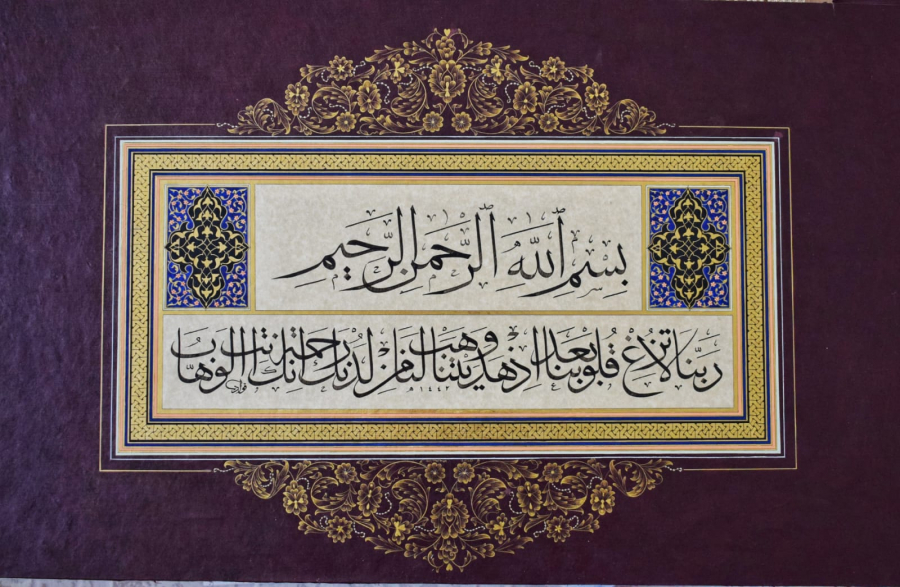 بِسْمِ اللّٰهِ الرَّحْمٰنِ الرَّحِيمِ
رَبَّنَا لَا تُزِغْ قُلُوبَنَا بَعْدَ اِذْ هَدَيْتَنَا وَهَبْ لَنَا مِنْ لَدُنْكَ رَحْمَةً اِنَّكَ اَنْتَ الْوَهَّابُ
١٤٤٢ھ